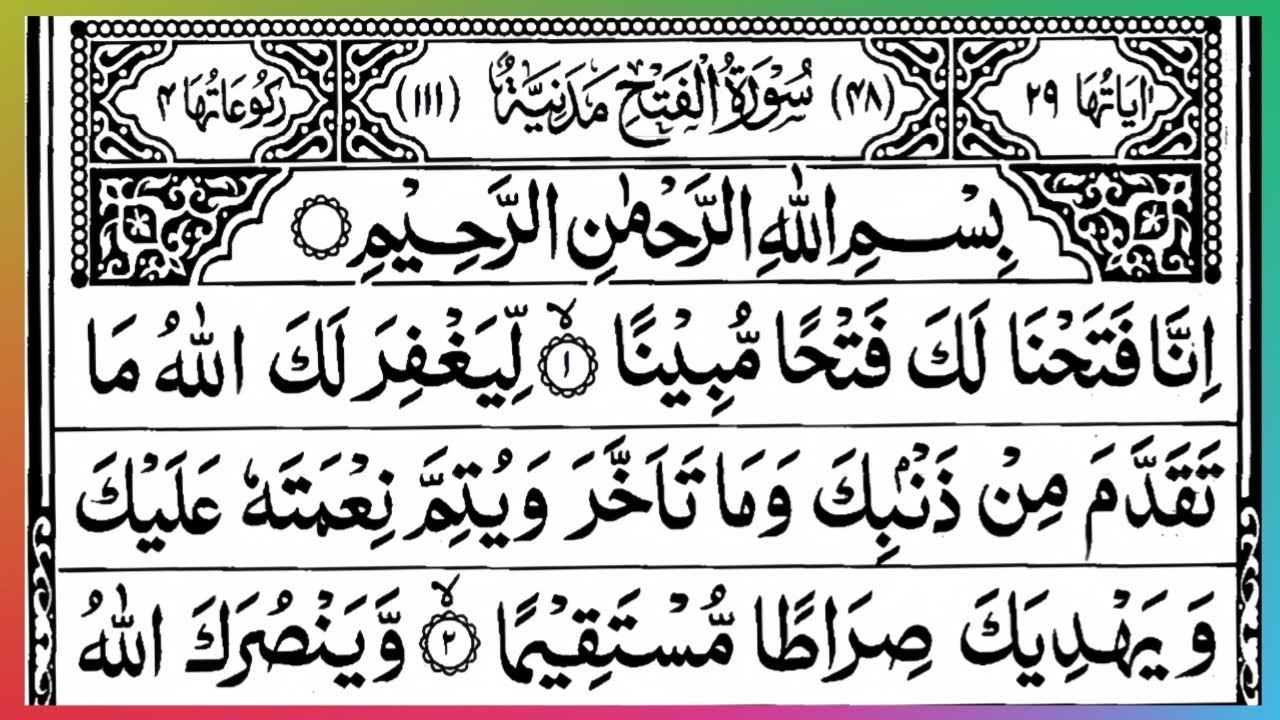 اٰيَاتُهَا ٢٩ (٤٨) سُوْرَةُ الْفَتْحِ مَدَنِيَّةٌ (١١١) رُكُوْعَاتُهَا ٤
بِسْمِ اللّٰهِ الرَّحْمٰنِ الرَّحِيْمِ
اِنَّا فَتَحْنَا لَكَ فَتْحًا مُّبِيْنًا ۙ ١ لِّيَغْفِرَ لَكَ اللّٰهُ مَا
تَقَدَّمَ مِنْ ذَنْۢبِكَ وَمَا تَاَخَّرَ وَيُتِمَّ نِعْمَتَهٗ عَلَيْكَ
وَيَهْدِيَكَ صِرَاطًا مُّسْتَقِيْمًا ۙ ٢ وَّيَنْصُرَكَ اللّٰهُ